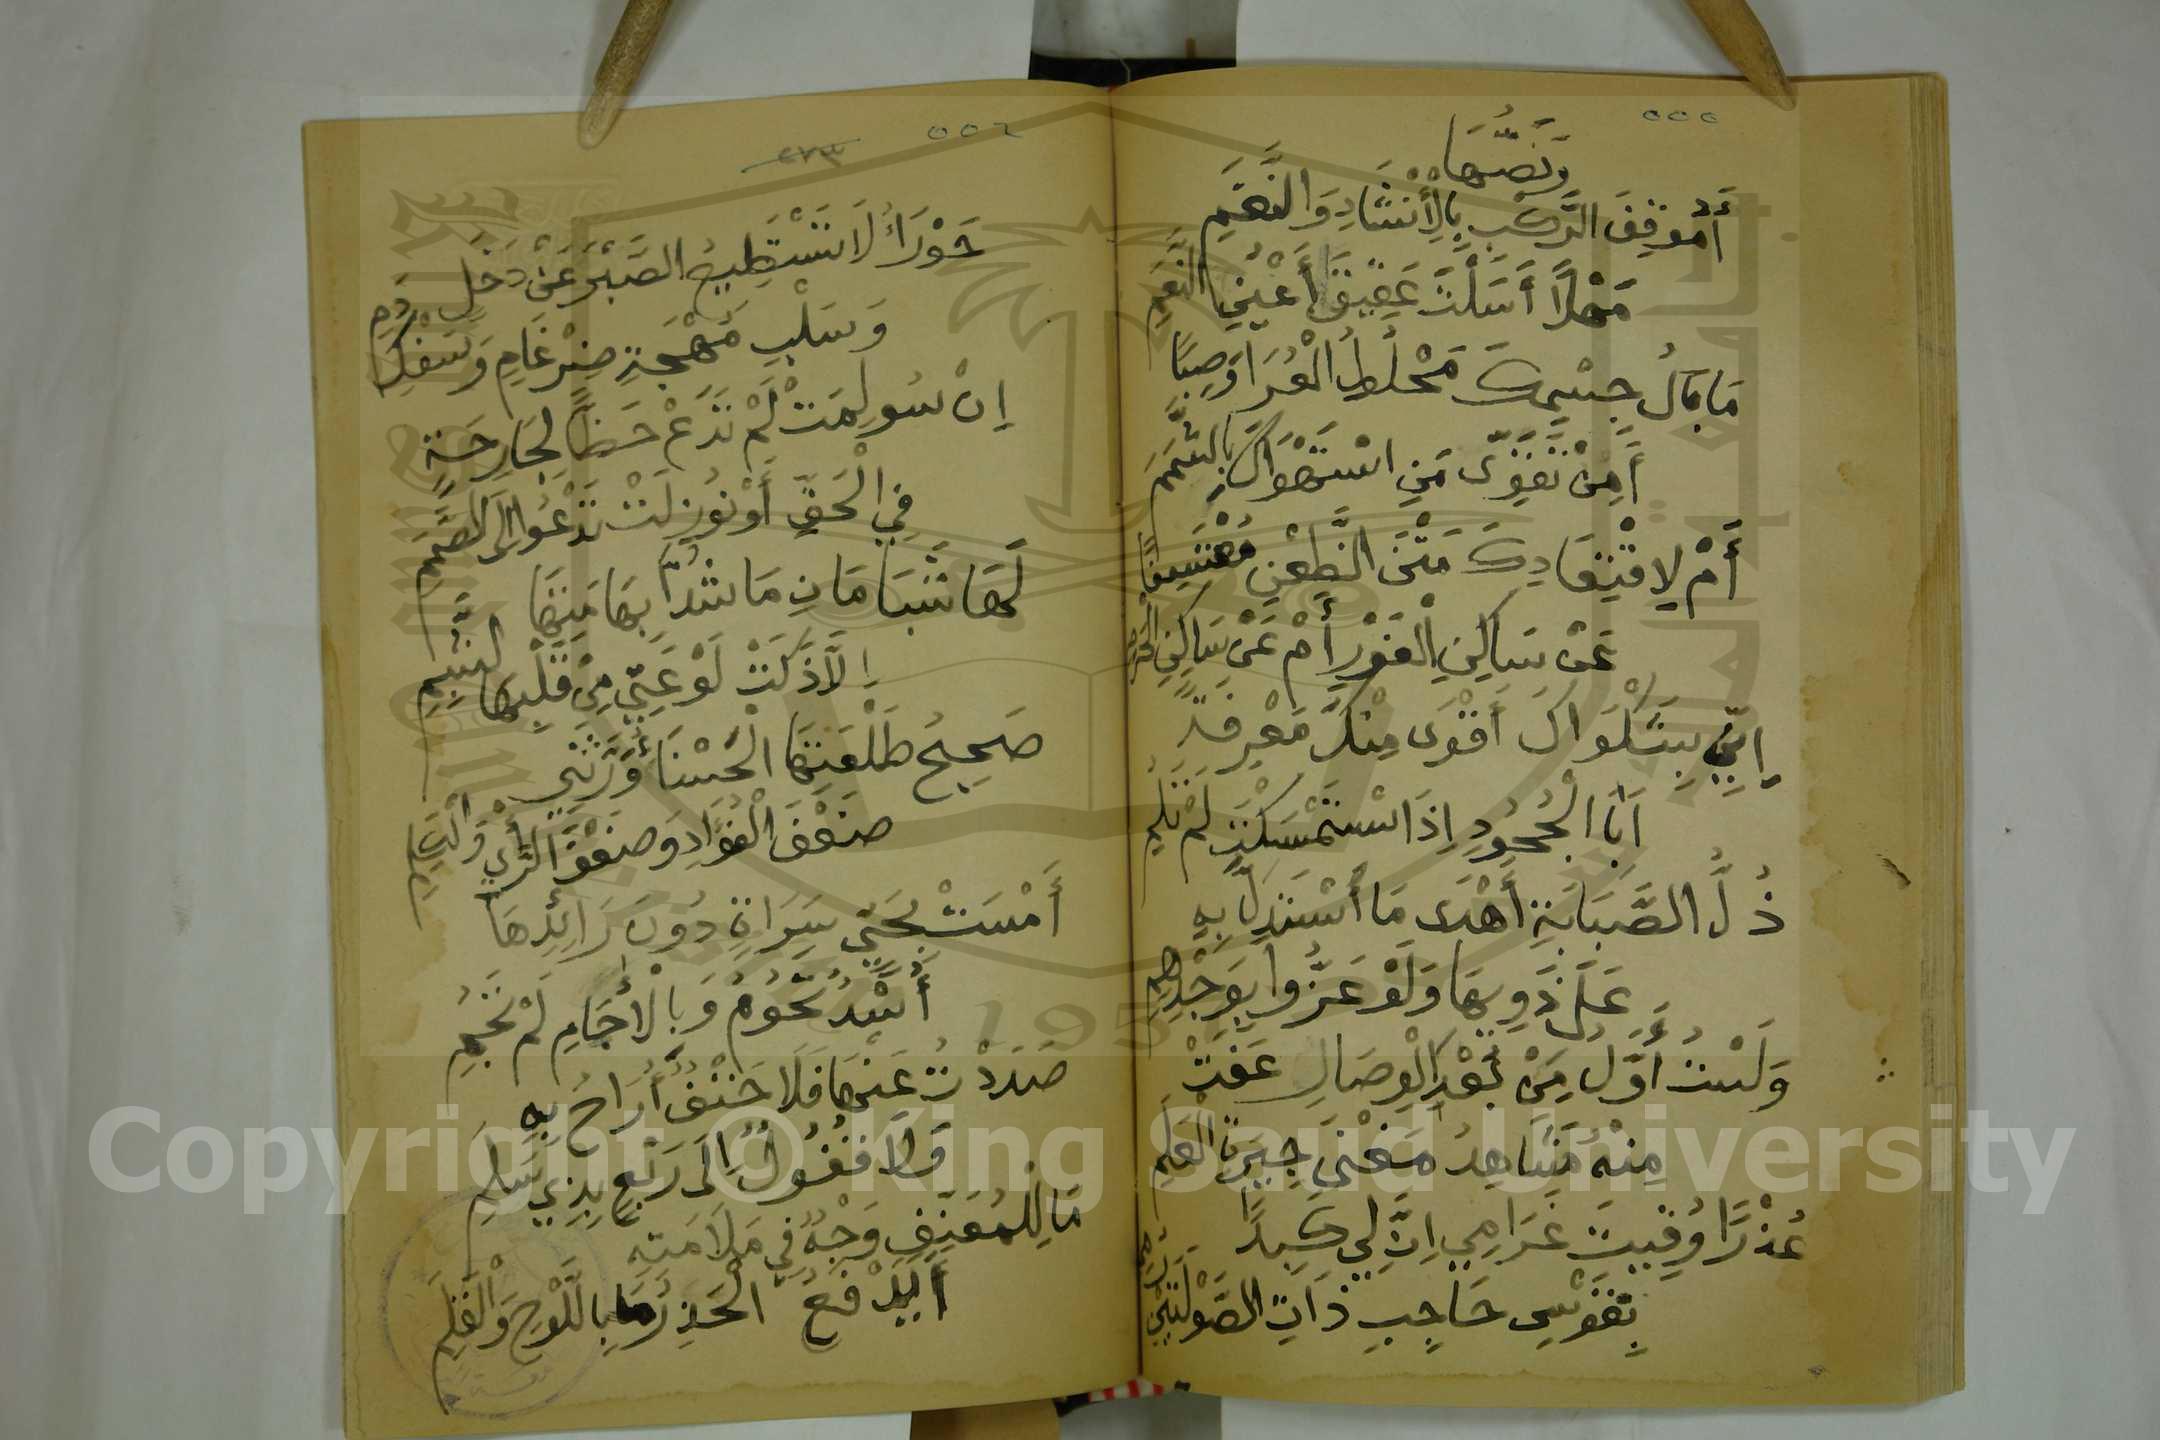 ٥٥٥
وَنَصُّهَا
أَمُوقِفَ الرَّكْبِ بِالْأَنْشَادِ وَالنَّغَمِ
مَهْلًا أَسَلْتَ عَقِيقَ أَعْيُنِ النَّعَمِ
مَا بَالُ جِسْمِكَ مَحْلُولُ الْعُرَا وَصِبًا
أَمِنْ تَقَوِّى مَنِ اسْتَهْوَاكَ بِالشَّمَمِ
أَمْ لِافْتِقَادِكَ مَتْنَ الظَّعْنِ مُعْتَسِفًا
عَنْ سَاكِنِ الْغَوْرِ أَمْ عَنْ سَاكِنِ الْحَرَمِ
إِنِّي بِبَلْوَاكَ أَقْوَى مِنْكَ مَعْرِفَةً
أَبَا الْجُحُودِ إِذَا اسْتَمْسَكْتَ لَمْ تُلَمِ
ذُلُّ الصَّبَابَةِ أَهْدَى مَا أَسْتَدِلُّ بِهِ
عَلَى ذَوِيهَا وَلَوْ عَزُّوا بِوَجْدِهِمِ
وَلَسْتُ أَوَّلَ مَنْ بَعْدَ الْوِصَالِ عَفَتْ
مِنْهُ مَشَاهِدُ مَغْنَى جِيرَةِ الْعَلَمِ
عُذْرًا وُقِيتَ غَرَامِي إِنَّ لِي كَبِدًا
بِقَوْسِ حَاجِبِ ذَاتِ الصَّوْلَتَيْنِ رُمِي
٥٥٦
٢٧٣
حَوْرَاءُ لَا تَسْتَطِيعُ الصَّبْرَ عَنْ دَخَلٍ
وَسَلْبِ مُهْجَةِ ضِرْغَامٍ وَسَفْكِ دَمِ
إِنْ سُولِمَتْ لَمْ تَدَعْ حَظًّا لِجَارِحَةٍ
فِي الْحَقِّ أَوْ نُوزِلَتْ تَدْعُو إِلَى الصَّمَمِ
لَهَا شَبَامَانِ مَا شُدَّا بِهَا مَنَهَا
إِلَّا ذَكَتْ لَوْعَتِي مِنْ قَلْبِهَا الشَّبِمِ
صَحِيحُ طَلْعَتِهَا الْحَسْنَا وَرَّثَنِي
ضَعْفَ الْفُؤَادِ وَضَعْفَ الرَّأْيِ وَالْهِمَمِ
أَمْسَتْ بِحَيِّ سَرَاةٍ دُونَ رَائِدِهَا
أُسْدٌ تَحُومُ وَبِالْأَجَامِ لَمْ تَحُمِ
صَدَدْتُ عَنْهَا فَلَا حَتْفٌ أُرَاحُ بِهِ
وَلَا قُفُولٌ إِلَى رَبْعٍ بِذِي سَلَمِ
مَا لِلْمُعَنِّفِ وَجْهٌ فِي مَلَامَتِهِ
أَيَدْفَعُ الْحَذِرُ مَا بِاللَّوْحِ وَالْقَلَمِ
Copyright © King Saud University